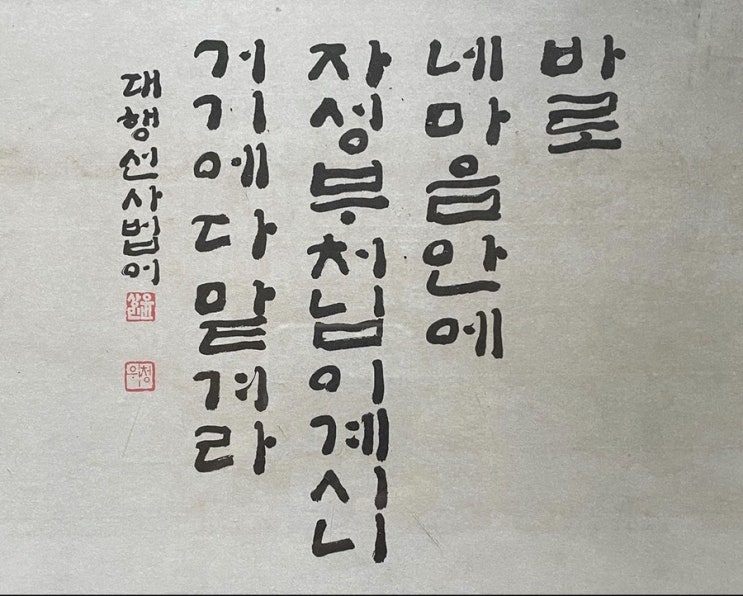 바로
네마음안에
자성부처님이계시니
거기에다맡겨라
대행선사법어